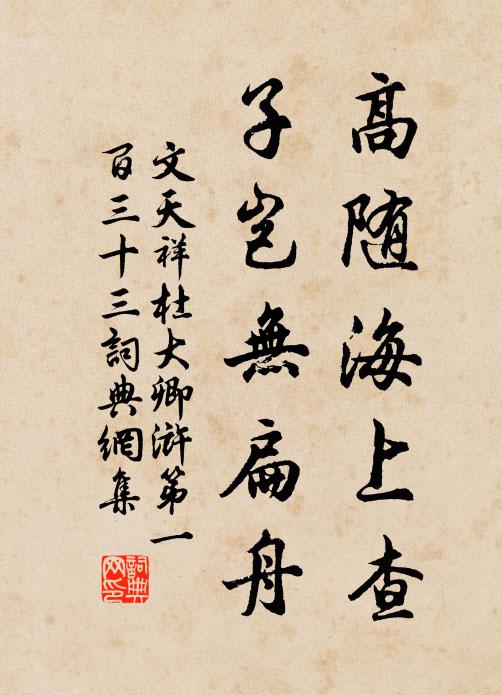 高随海上查
子豈無扁舟
文天祥杜大卿滸第一
百三十三詞典網集
詞典
网印